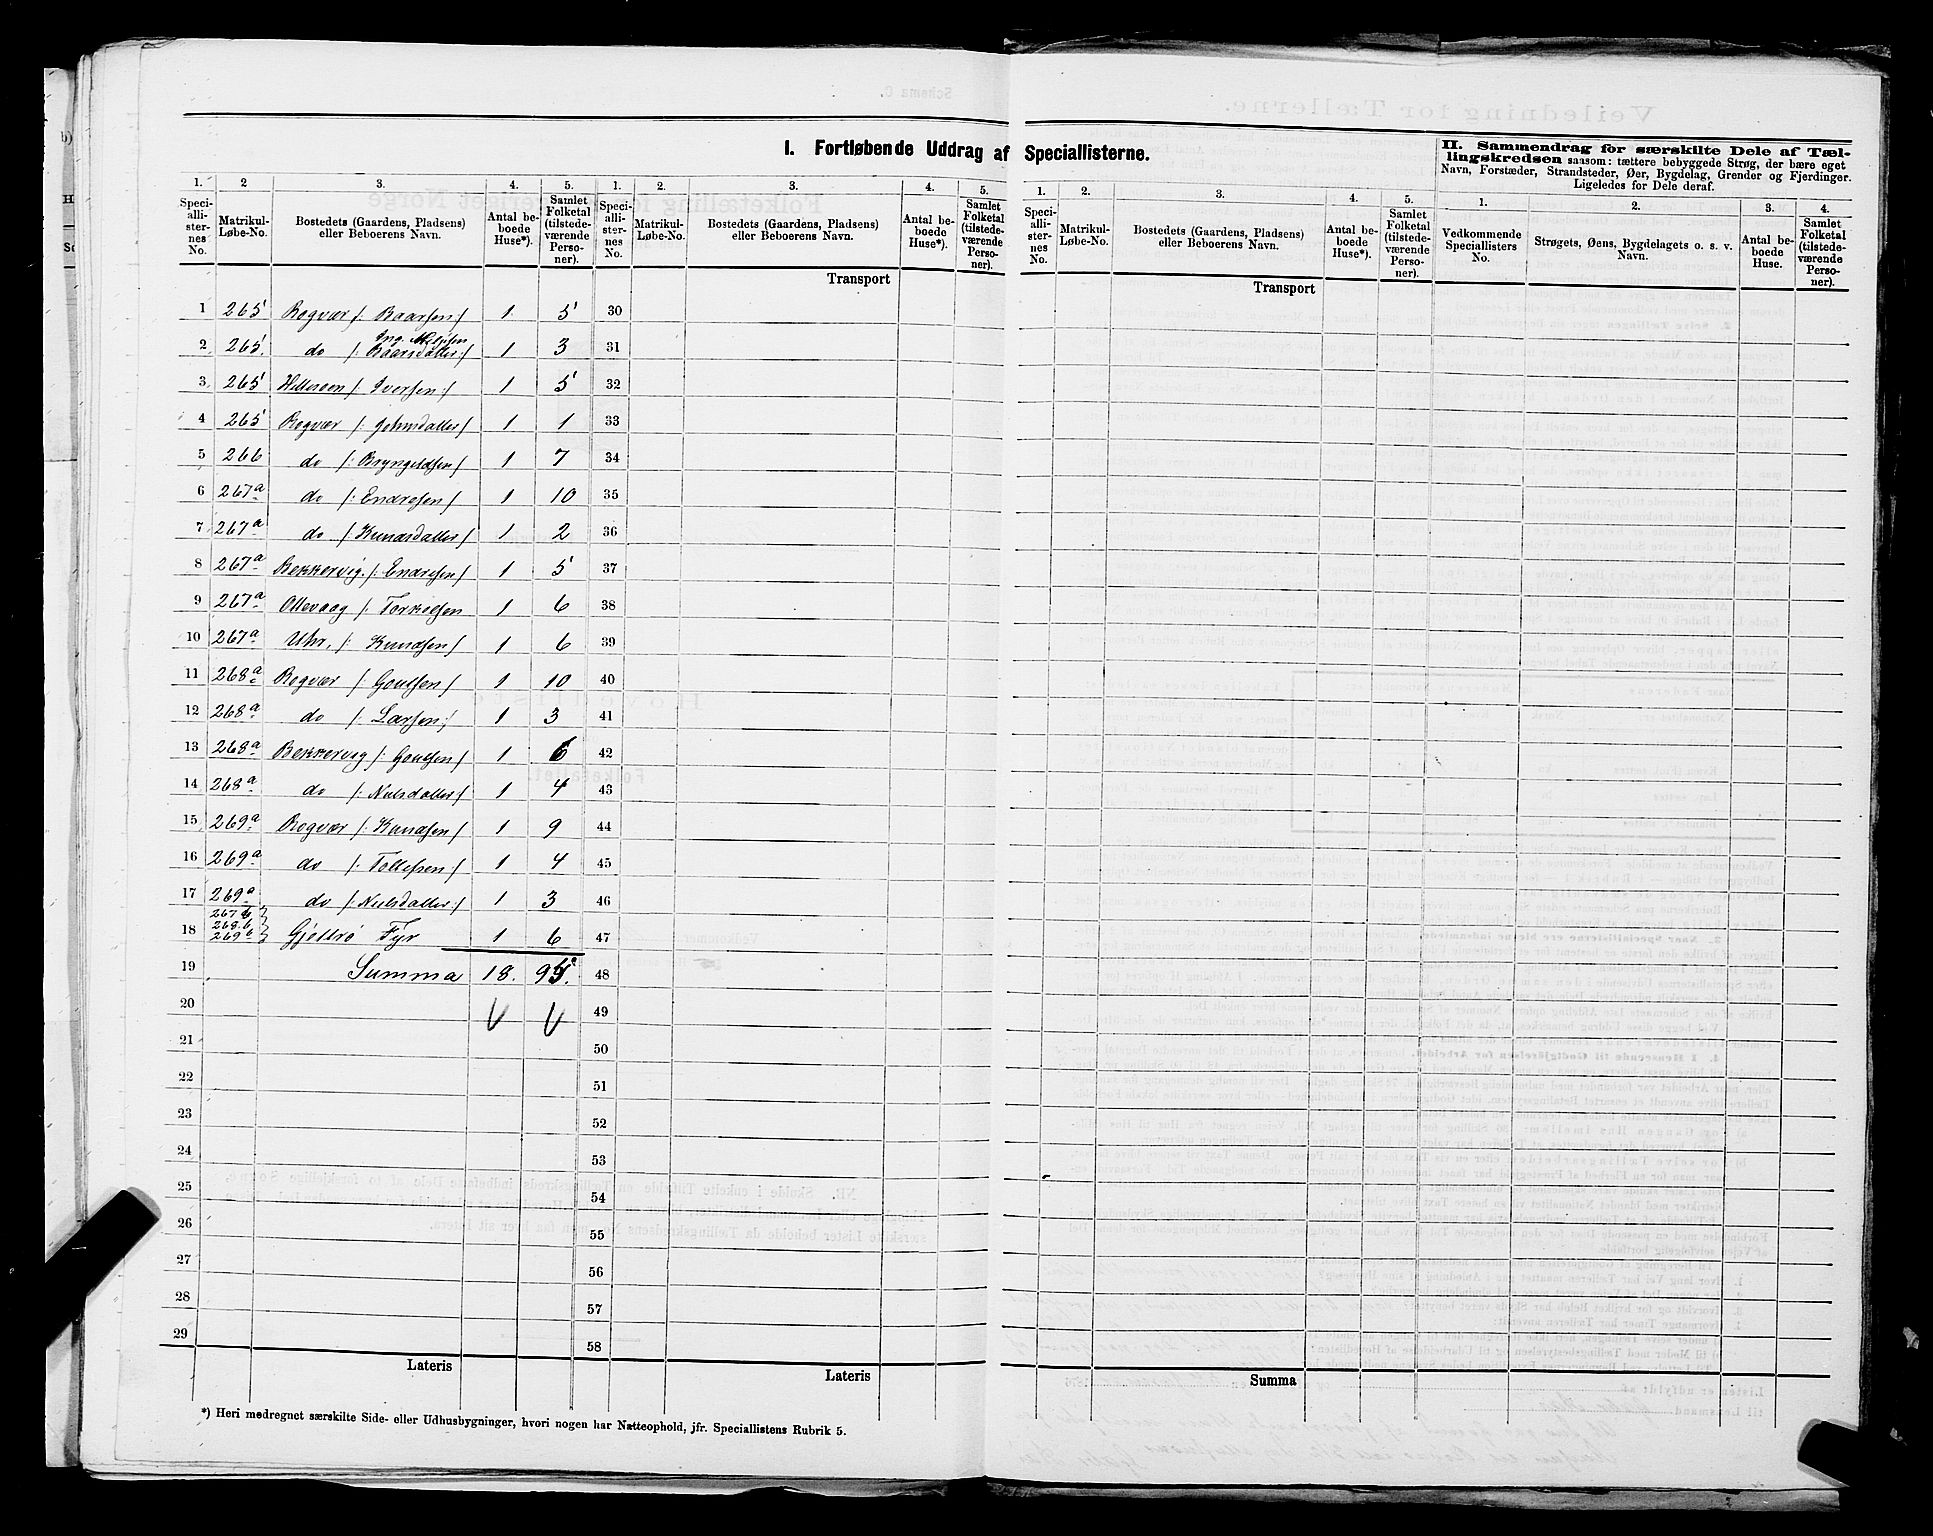 I. Fortløbende Uddrag af Speciallisterne.
II. Sammendrag for særskilte Dele af Tæl-
lingskredsen saasom: tættere bebyggede Strøg, der bære eget
Navn, Forstæder, Strandsteder, Øer, Bygdelag, Grender og Fjerdinger.
Ligeledes for Dele deraf.
1. 2 3. 4. 5. 1. 2. 3. 4. 5. 1. 2. 3. 4. 5. 1. 2. 3. 4.
Speciallisternes No. Matrikul-Løbe-No. Bostedets (Gaardens, Pladsens) eller Beboerens Navn. Antal beboede Huse*). Samlet Folketal (tilstedeværende Personer).
Speciallisternes No. Matrikul-Løbe-No. Bostedets (Gaardens, Pladsens) eller Beboerens Navn. Antal beboede Huse*). Samlet Folketal (tilstedeværende Personer).
Speciallisternes No. Matrikul-Løbe-No. Bostedets (Gaardens, Pladsens) eller Beboerens Navn. Antal beboede Huse*). Samlet Folketal (tilstedeværende Personer).
Vedkommende Speciallisters No. Strøgets, Øens, Bygdelagets o. s. v. Navn. Antal beboede Huse. Samlet Folketal (tilstedeværende Personer).
Transport Transport
1 265 Rogvær /: Baarsen :/ 1 5 30
2 265. do /: Ing. Baarsdatter :/ 1 3 31
3 265 Hillersøen /: Iversen :/ 1 5 32
4 265 Rogvær /: Johnsdatter / 1 1 33
5 266 do /: Bryngeldsen / 1 7 34
6 267a do /: Endresen / 1 10 35
7 267a do /: Knudsdatter / 1 2 36
8 267a Bekkervig. /: Endresen / 1 5 37
9 267a Ollevaag /: Torkelsen 1 6 38
10 267a Uhr, /: Knudsen / 1 6 39
11 268a Rogvær /: Goutsen / 1 10 40
12 268a do /: Larsen :/ 1 3 41
13 268a Bekkervig /: Goutsen / 1 6 42
14 268a do /: Nielsdatter :/ 1 4 43
15 269a Rogvær /: Knudsen / 1 9 44
16 269a do /: Tollefsen :/ 1 4 45
17 269a do /: Nielsdatter :/ 1 3 46
18 267b 268b 269b Gjeiterø Fyr 1 6 47
19 Summa 18. 95. 48
20 49
21 50
22 51
23 52
24 53
25 54
26 55
27 56
28 57
29 58
Lateris Lateris Summa
*) Heri medregnet særskilte Side- eller Udhusbygninger, hvori nogen har Natteophold, jfr. Speciallistens Rubrik 5.